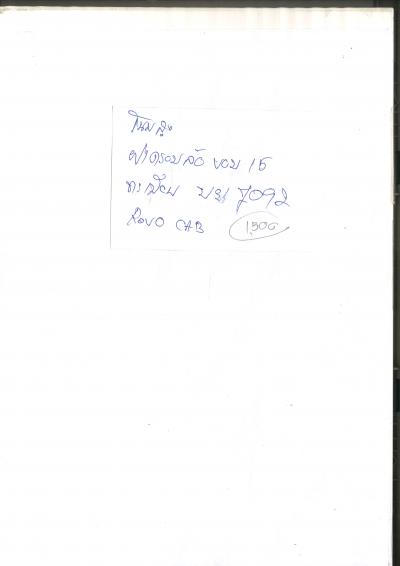 โนมสูง
ฝาครอบล้อ ขอบ 15
ทะเบียน บบ 7092
REVO CAB 1,500